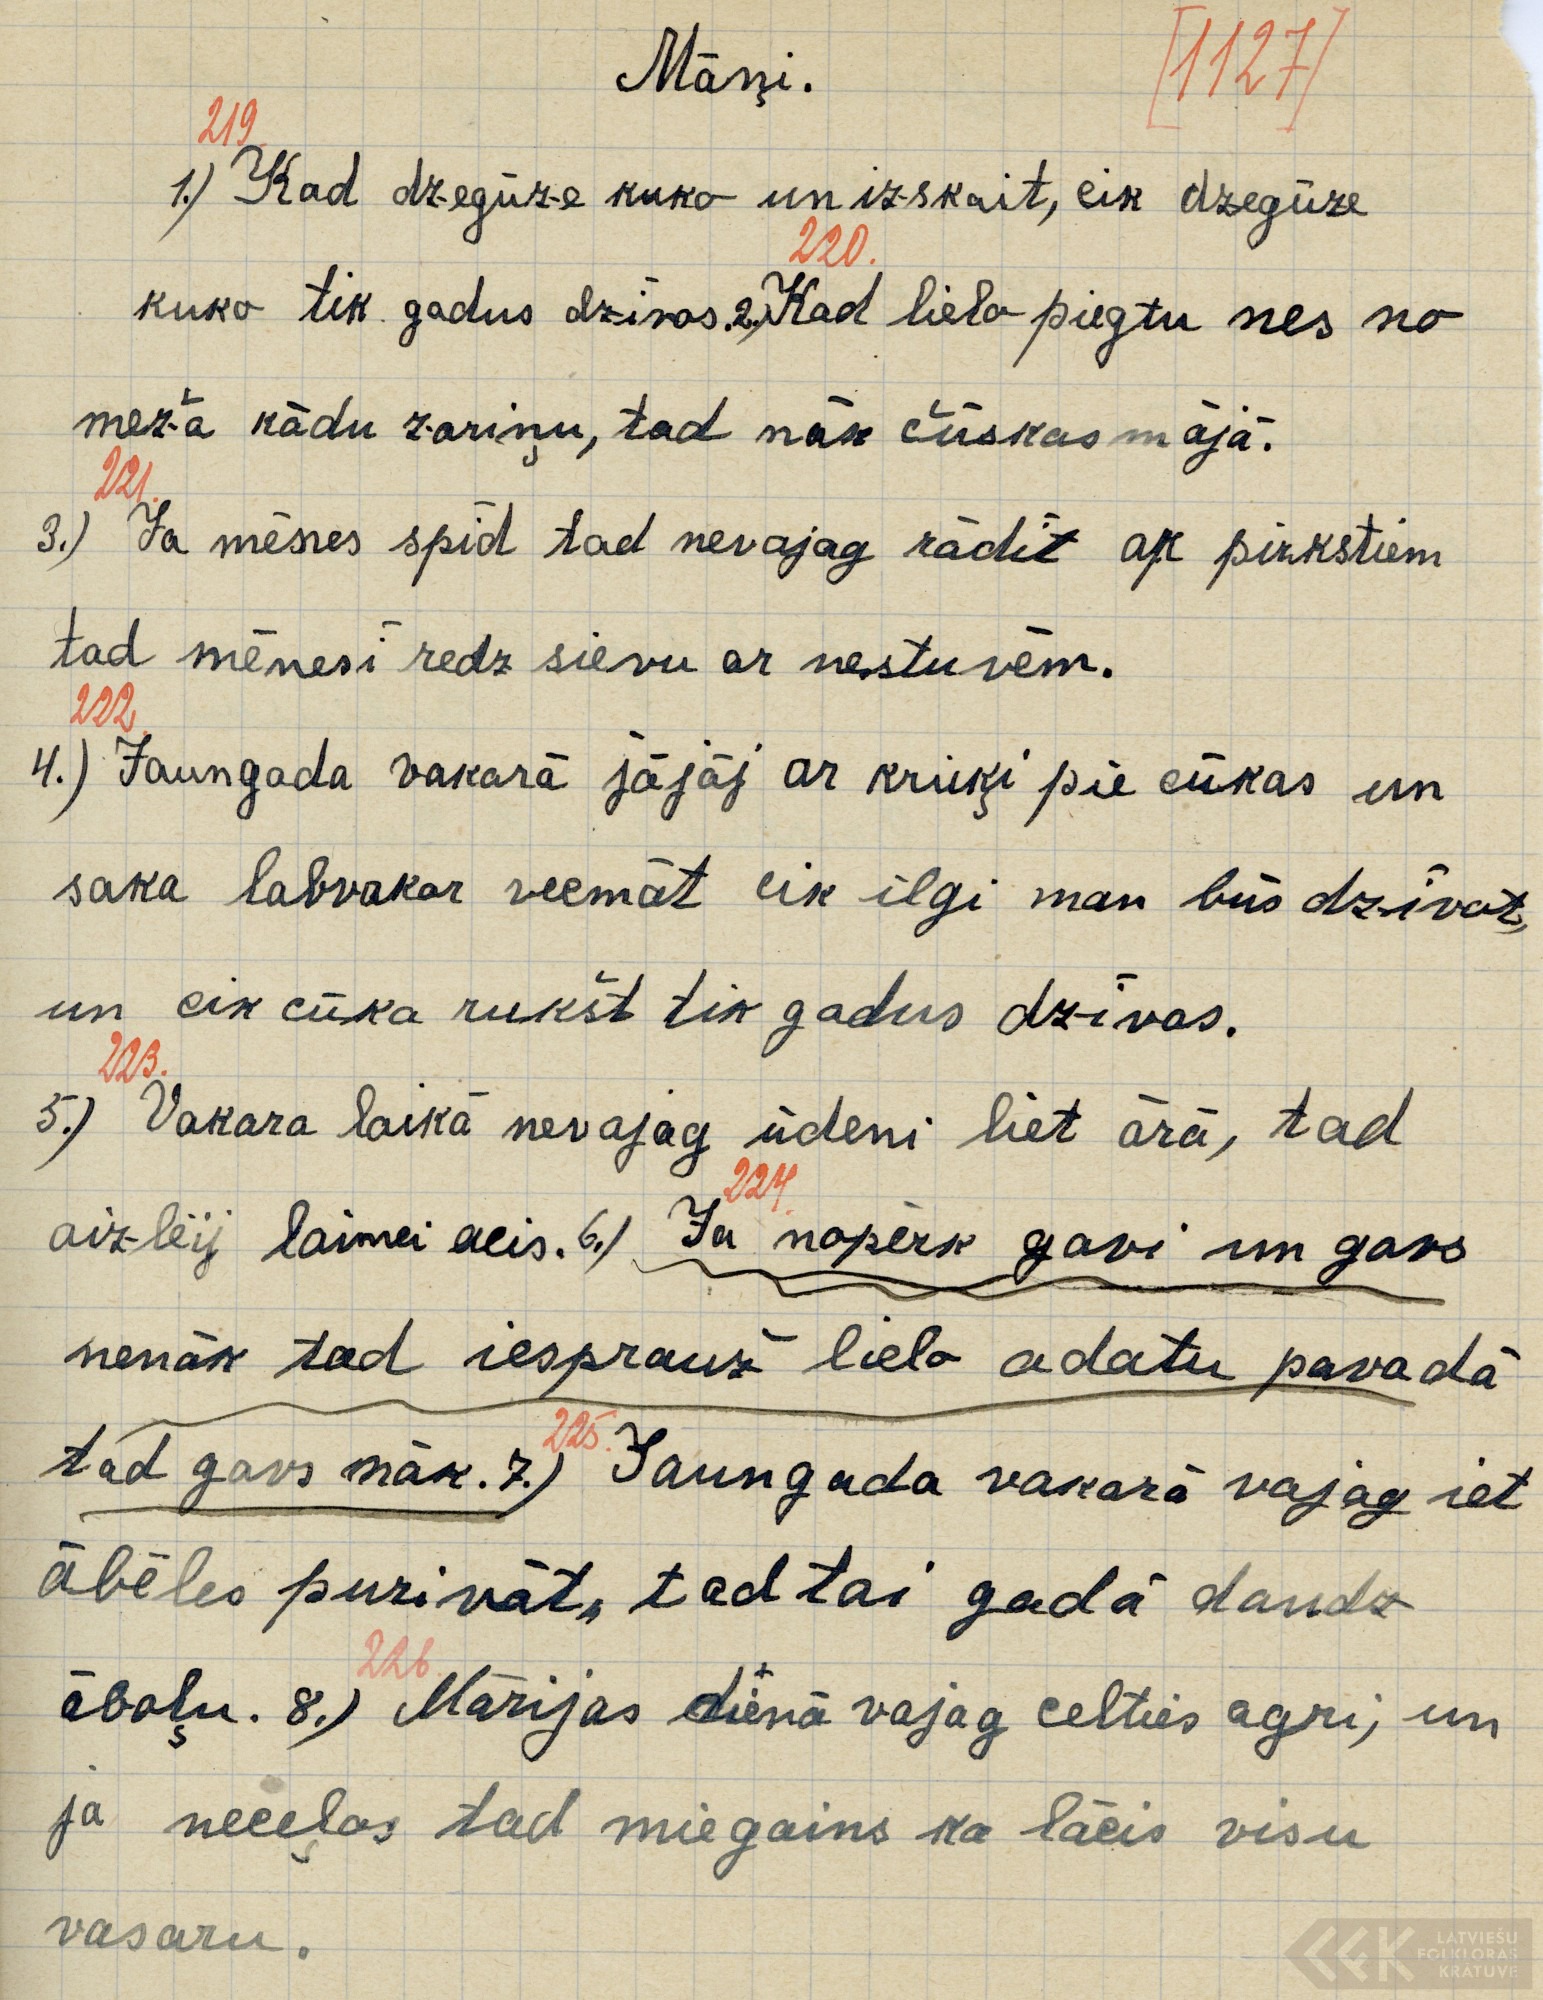 Māņi.
[1127]
219.
1.) Kad dzegūze kuko un izskait, cik dzegūze
220.
kuko tik gadus dzīvos. 2.) Kad liela piegtu nes no
meža kādu zariņu, tad nāk čūskas mājā.
221.
3.) Ja mēsnes spīd tad nevajag rādīt ar pirkstiem
tad mēnesī redz sievu ar nestuvēm.
222.
4.) Jaungada vakarā jājāj ar kruķi pie cūkas un
saka labvakar vecmāt cik ilgi man būs dzīvot,
un cik cūka rukšt tik gadus dzīvos.
223.
5.) Vakara laikā nevajag ūdeni liet ārā, tad
aizlēij laimei acis. 6.) Ja nopērk govi un govs
224.
nenāk tad iesprauž lielo adatu pavadā
tad govs nāk. 7.) Jaungada vakarā vajag iet
225.
ābēles purināt, tad tai gadā daudz
ābolu. 8.) Mārijas dienā vajag celties agri, un
226.
ja neceļas tad miegains ka lācis visu
vasaru.
LATVIEŠU
FOLKLORAS
KRĀTUVE